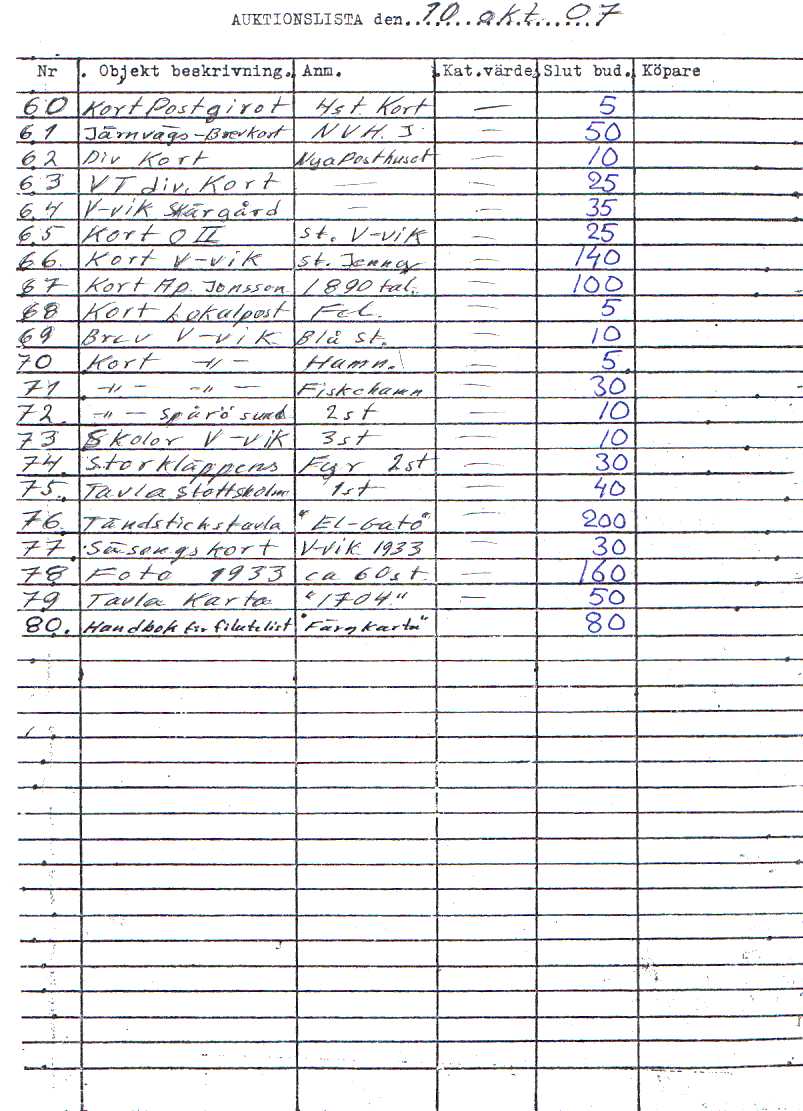 AUKTIONSLISTA den 10 okt. 07
Nr . Objekt beskrivning. Anm. .Kat.värde Slut bud. Köpare
60 Kort Postgirot 4st. Kort — 5
61 Järnvägs-Brevkort NVH.J. — 50
62 Div Kort Nya Posthuset — 10
63 VT div. Kort — — 25
64 V-vik Skärgård — — 35
65 Kort O II st. V-vik — 25
66. Kort V-vik st. Jenny — 140
67 Kort Ap. Jonsson 1890 tal. — 100
68 Kort Lokalpost — 5
69 Brev V-vik Blå st. — 10
70 Kort -"- Hamn. — 5
71 -"- -"- Fiskehamn — 30
72. -"- Spårö sund 2st — 10
73 Skolor V-vik 3st — 10
74. Storkläppens Fyr 2st — 30
75. Tavla Slottsholm 1st — 40
76. Tändstickstavla "El-Gato" — 200
77. Säsongskort V-vik 1933 — 30
78 Foto 1933 ca 60st. — 160
79 Tavla Karta "1704" — 50
80. Handbok för filatelist "Färgkarta" 80